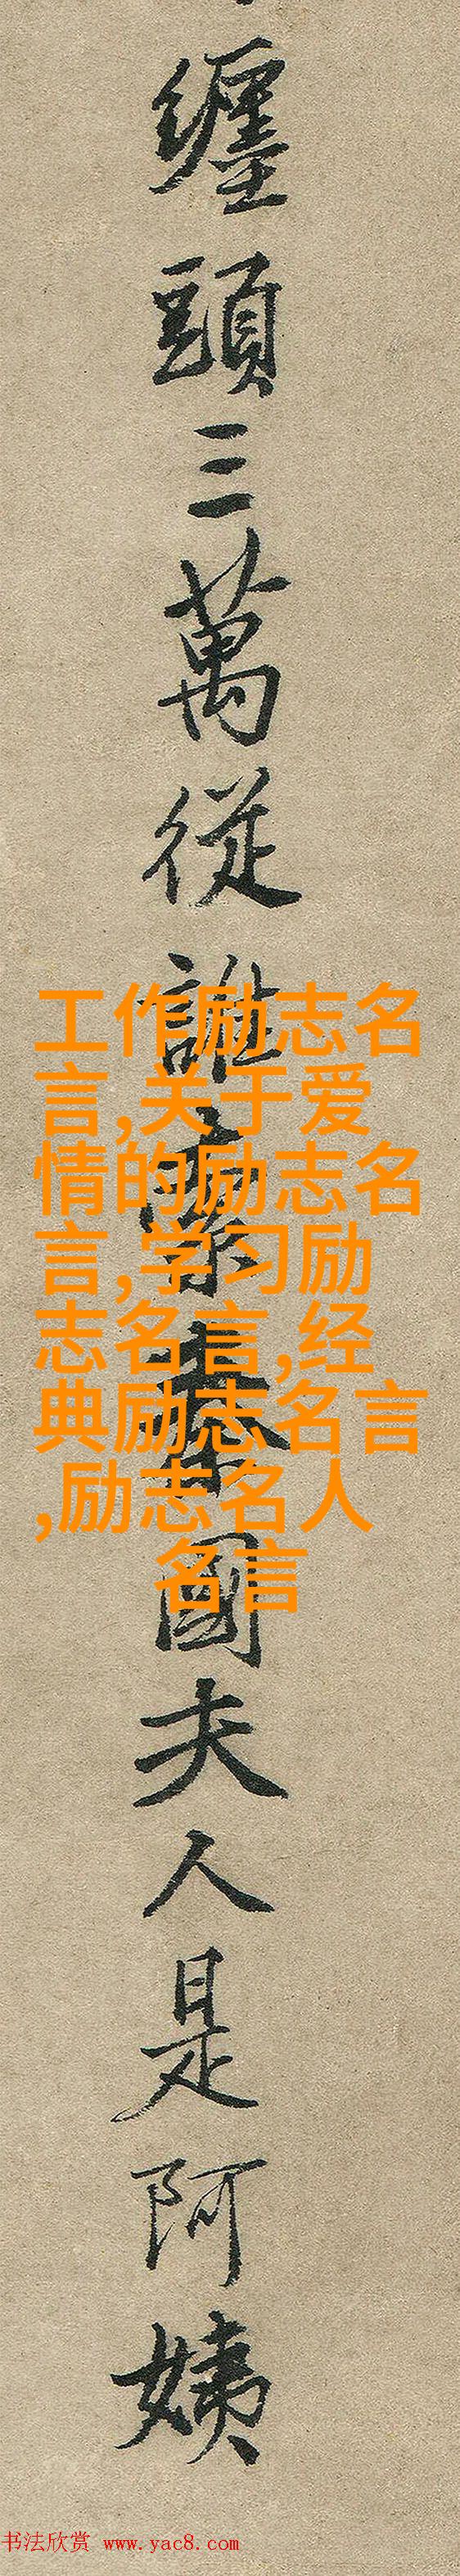 纏頭三萬從誰索秦國夫人是阿姨
工作励志名
言,关于爱
情的励志名
言,学习励
志名言,经
典励志名言
,励志名人
名言
书法欣赏 www.yac8.com